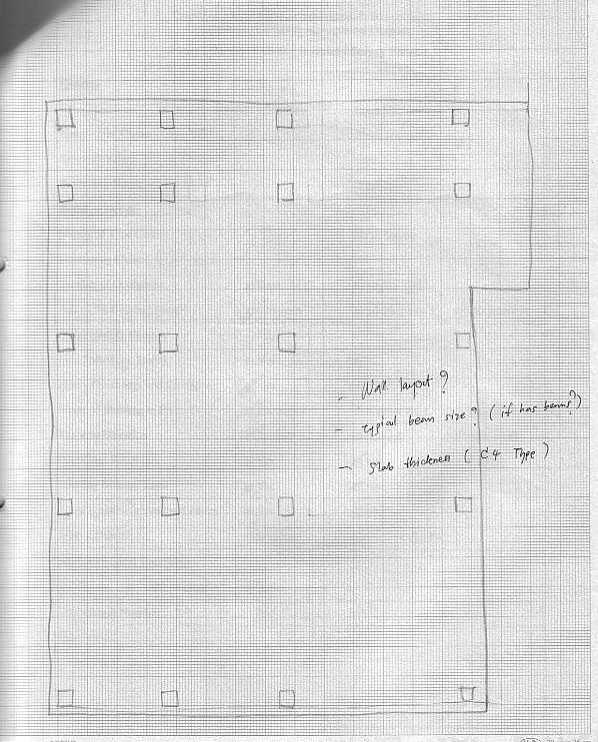 - Wall layout?
- typical beam size? (if has beams?)
- Slab thickness ( & Type )